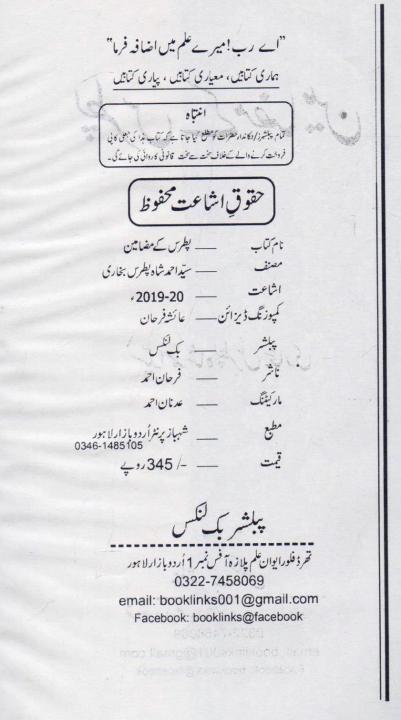 "اے رب! میرے علم میں اضافہ فرما"
ہماری کتابیں، معیاری کتابیں، پیاری کتابیں
انتباہ
تمام پبلشرز/دکاندار حضرات کو مطلع کیا جاتا ہے کہ کتاب ہٰذا کی جعلی کاپی
فروخت کرنے والے کے خلاف سخت سے سخت قانونی کاروائی کی جائے گی۔
حقوقِ اشاعت محفوظ
نام کتاب — پطرس کے مضامین
مصنف — سیّد احمد شاہ پطرس بخاری
اشاعت — 2019-20ء
کمپوزنگ ڈیزائن — عائشہ فرحان
پبلشر — بک لنکس
ناشر — فرحان احمد
مارکیٹنگ — عدنان احمد
مطبع — شہباز پرنٹر اُردو بازار لاہور
0346-1485105
قیمت — 345/- روپے
پبلشر بک لنکس
تھرڈ فلور ایوان علم پلازہ آفس نمبر 1 اُردو بازار لاہور
0322-7458069
email: booklinks001@gmail.com
Facebook: booklinks@facebook